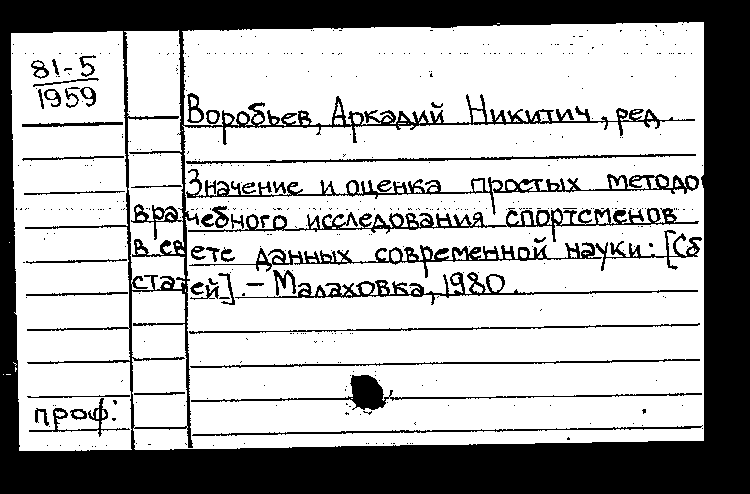 81-5
1959
Воробьев, Аркадий Никитич, ред.
Значение и оценка простых методо
врачебного исследования спортсменов
в свете данных современной науки: [Сб
статей]. – Малаховка, 1980.
проф: